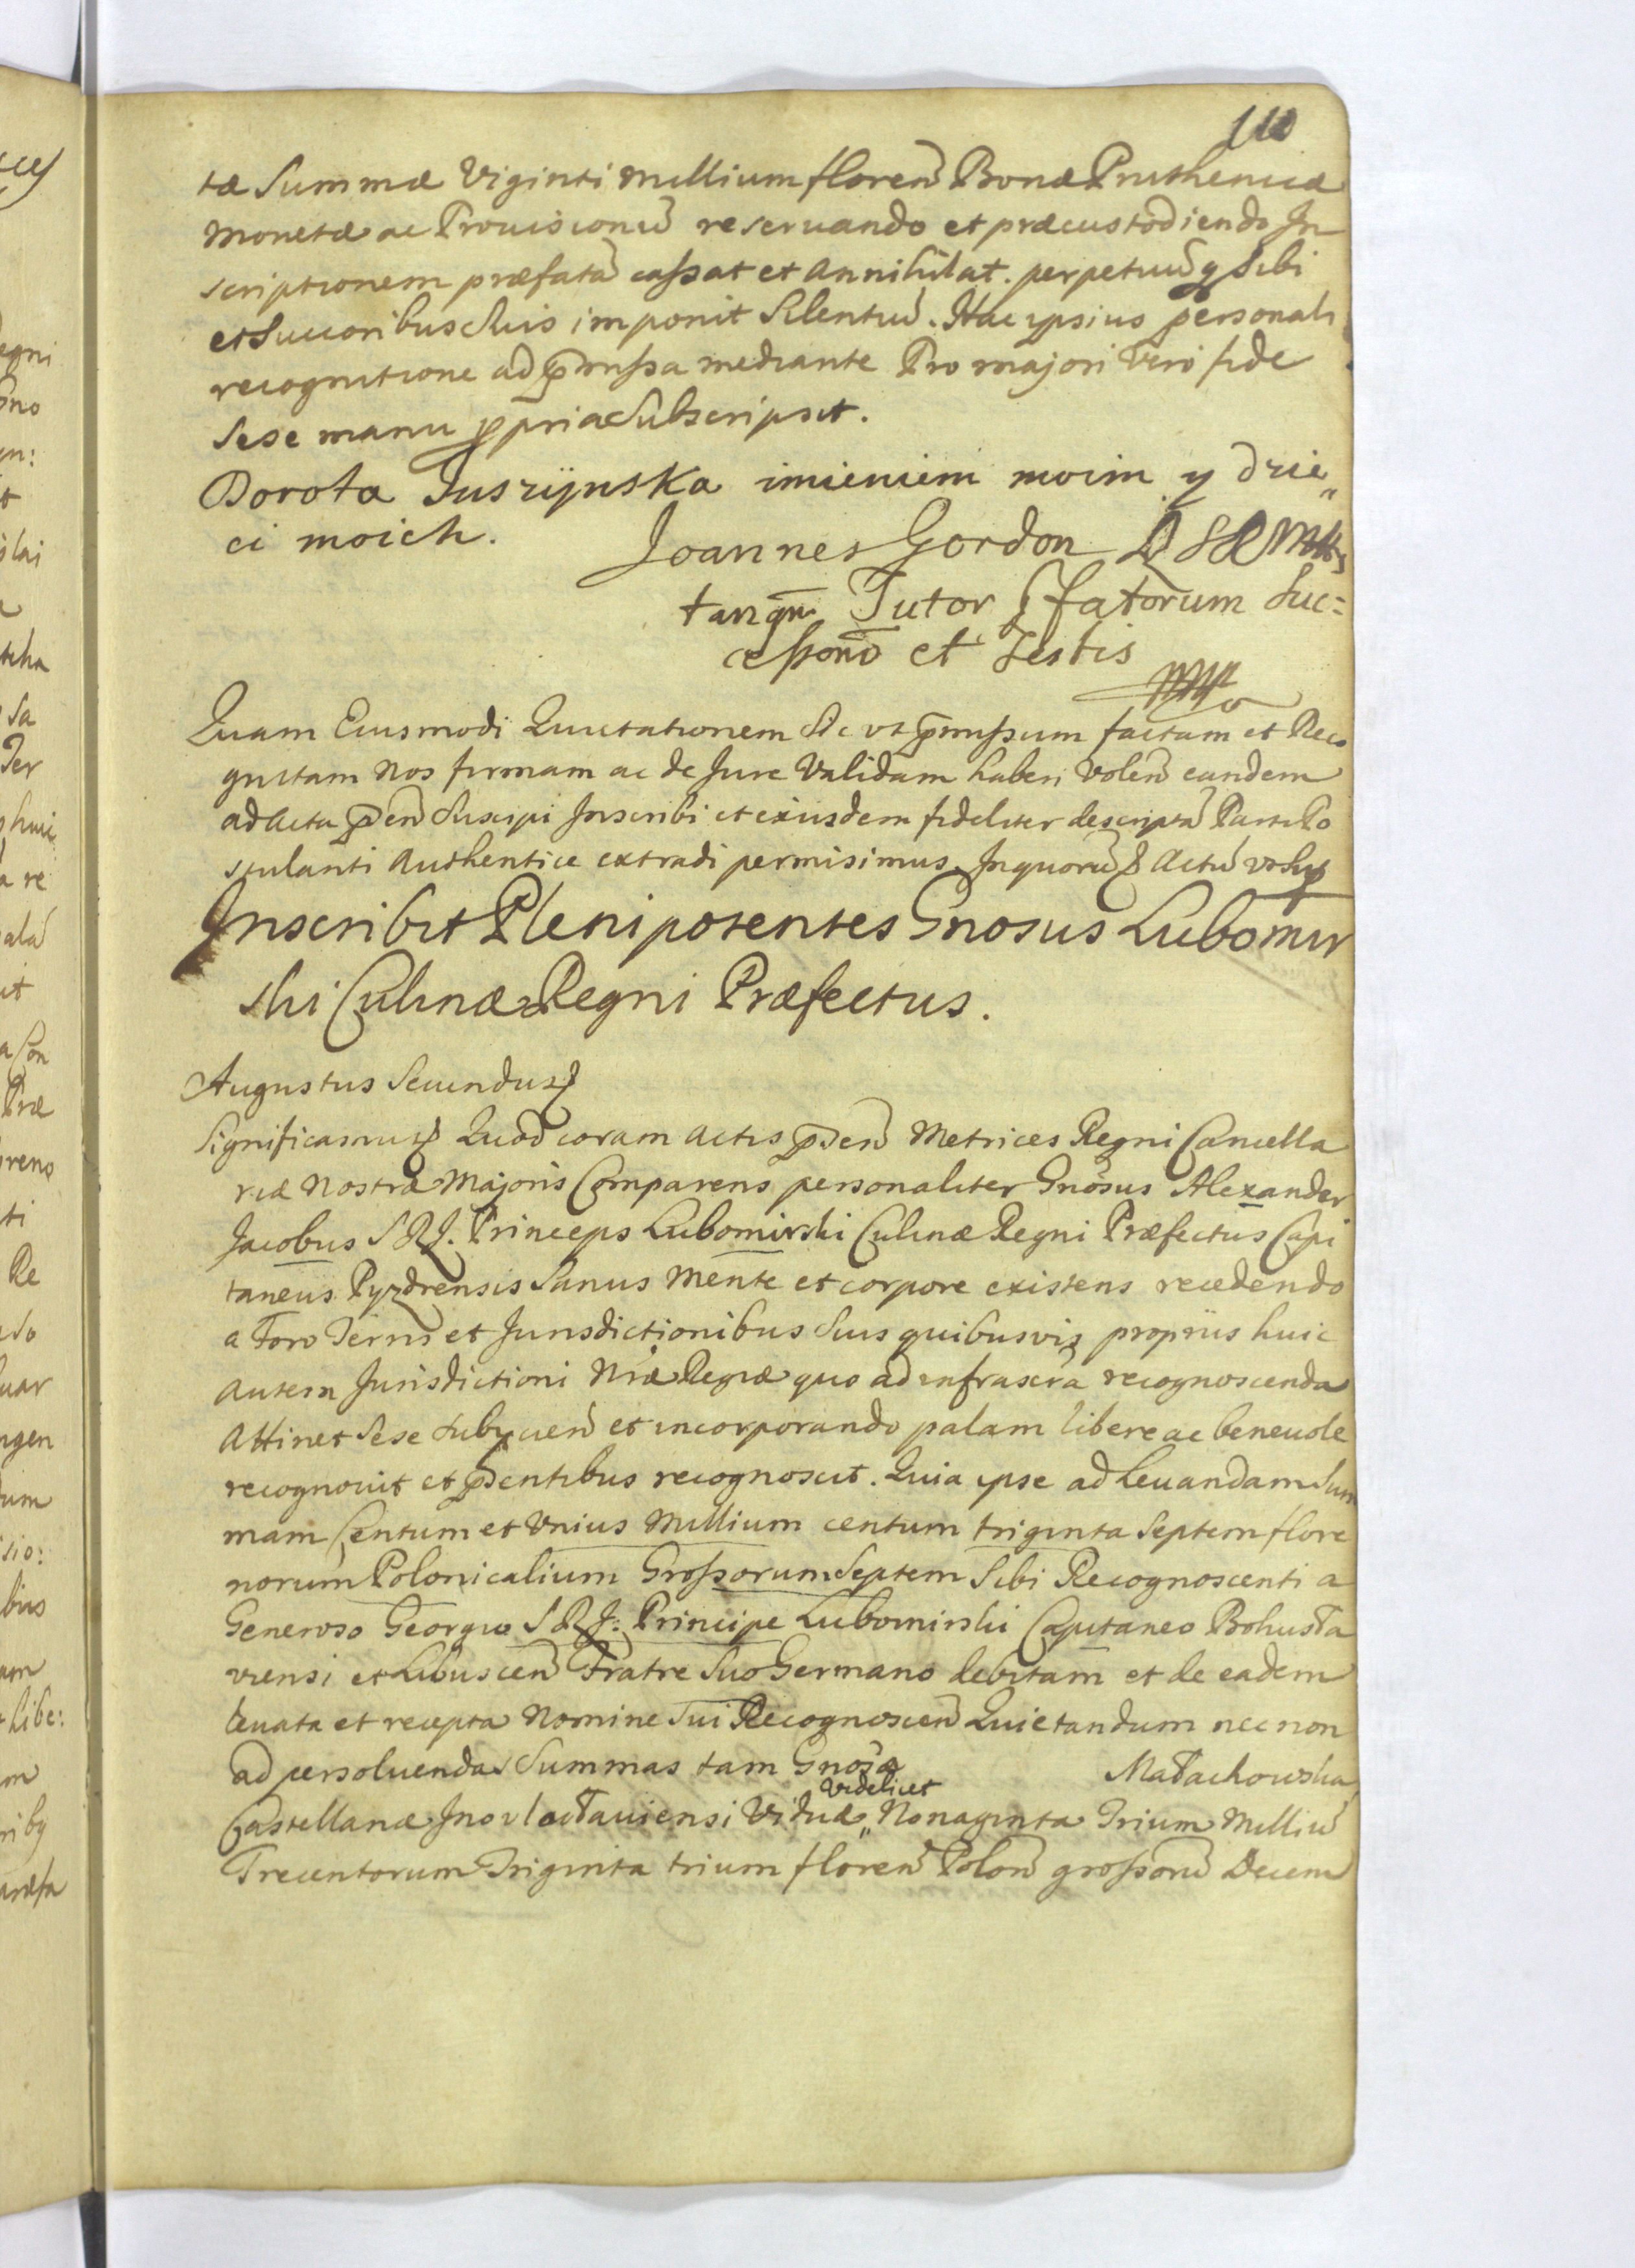 110
tæ Summæ Viginti Millium floren Bonæ Pruthenicæ
Monetæ ac Prouisionū reseruando et præcustodiendo In
scriptionem præfatā cassat et Annihilat. perpetuūq Sibi
et Succoribus Suis imponit Silentiū. Hac ipsius personali
recognitione ad p̄missa mediante Pro majori Vero fide
Sese manu ppria Subscripsit.
Dorota Juszÿnska imieniem moim y dzie„
ci moich.
Joannes Gordon
tanqm̄ Tutor pfatorum Suc=
cessorū et Testis
mp
Quam Eiusmodi Quietationem Sic ut p̄missum factam et Reco
gnitam Nos firmam ac de Jure Validam haberi Volen̄ eandem
ad Acta p̄sen̄ Suscipi Inscribi et eiusdem fideliter descriptā Parti Po
stulanti Authentice extradi permisimus. In quorū Actū vt Supr
Inscribit Plenipotentes Gnosus Lubomir
ski Culinæ Regni Præfectus.
Augustus Secundus
Significamus Quod coram Actis p̄sen̄ Metrices Regni Cancella
riæ Nostræ Majoris Comparens personaliter Gnosus Alexander
Jacobus S R J. Princeps Lubomirski Culinæ Regni Præfectus Capi
taneus Pyzdrensis Sanus Mente et corpore existens recedendo
a Foro Terris et Jurisdictionibus Suis quibusvis proprijs huic
Autem Jurisdictioni Nræ Regiæ quo ad infrascra recognoscenda
Attinet Sese Subijcien̄ et incorporando palam libere ac beneuole
recognouit et p̄sentibus recognoscit. Quia ipse ad Leuandam Sum
mam Centum et Vnius Millium centum triginta Septem flore
norum Polonicalium Grossorum Septem Sibi Recognoscenti a
Generoso Georgio S R J. Principe Lubomirski Capitaneo Bohusła
viensi et Libuscen̄ Fratre Suo Germano debitam et de eadem
leuata et recepta Nomine Sui Recognoscen̄ Quietandum nec non
ad persoluendas Summas tam Gnosa Małachowska
Castellanæ Inovlocłauiensi Viduæ „ Videlicet Nonaginta Trium Milliū
Trecentorum Triginta trium floren̄ Polon̄ grossorū Decem